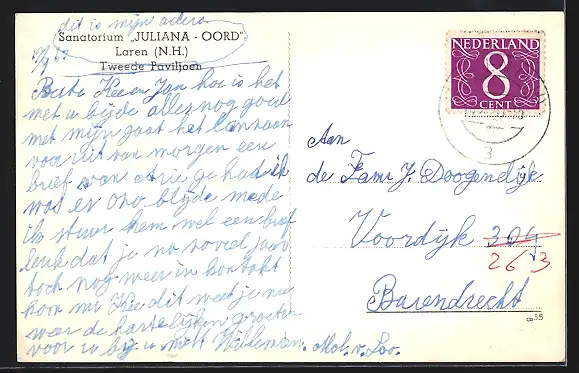 dit is mijn adres
Sanatorium „JULIANA - OORD"
Laren (N.H.)
Tweede Paviljoen
Beste Kee en Jan hoe is het
met u bijde alles nog goed
met mijn gaat het langzaam
vooruit van morgen een
brief van Arie gehad ik
was er ono blijde mede
ik stuur hem wel een brief
leuk dat je na zoveel jaar
toch nog weer in kontakt
kom nu Kee dit weet je nu
weer de hartelijken groeten
voor u bij u met Willemien. Mol. v. Loo.
NEDERLAND
8
CENT
3
Aan
de Fam. J. Doogendijk
Voordijk 304
263
Barendrecht
8 55